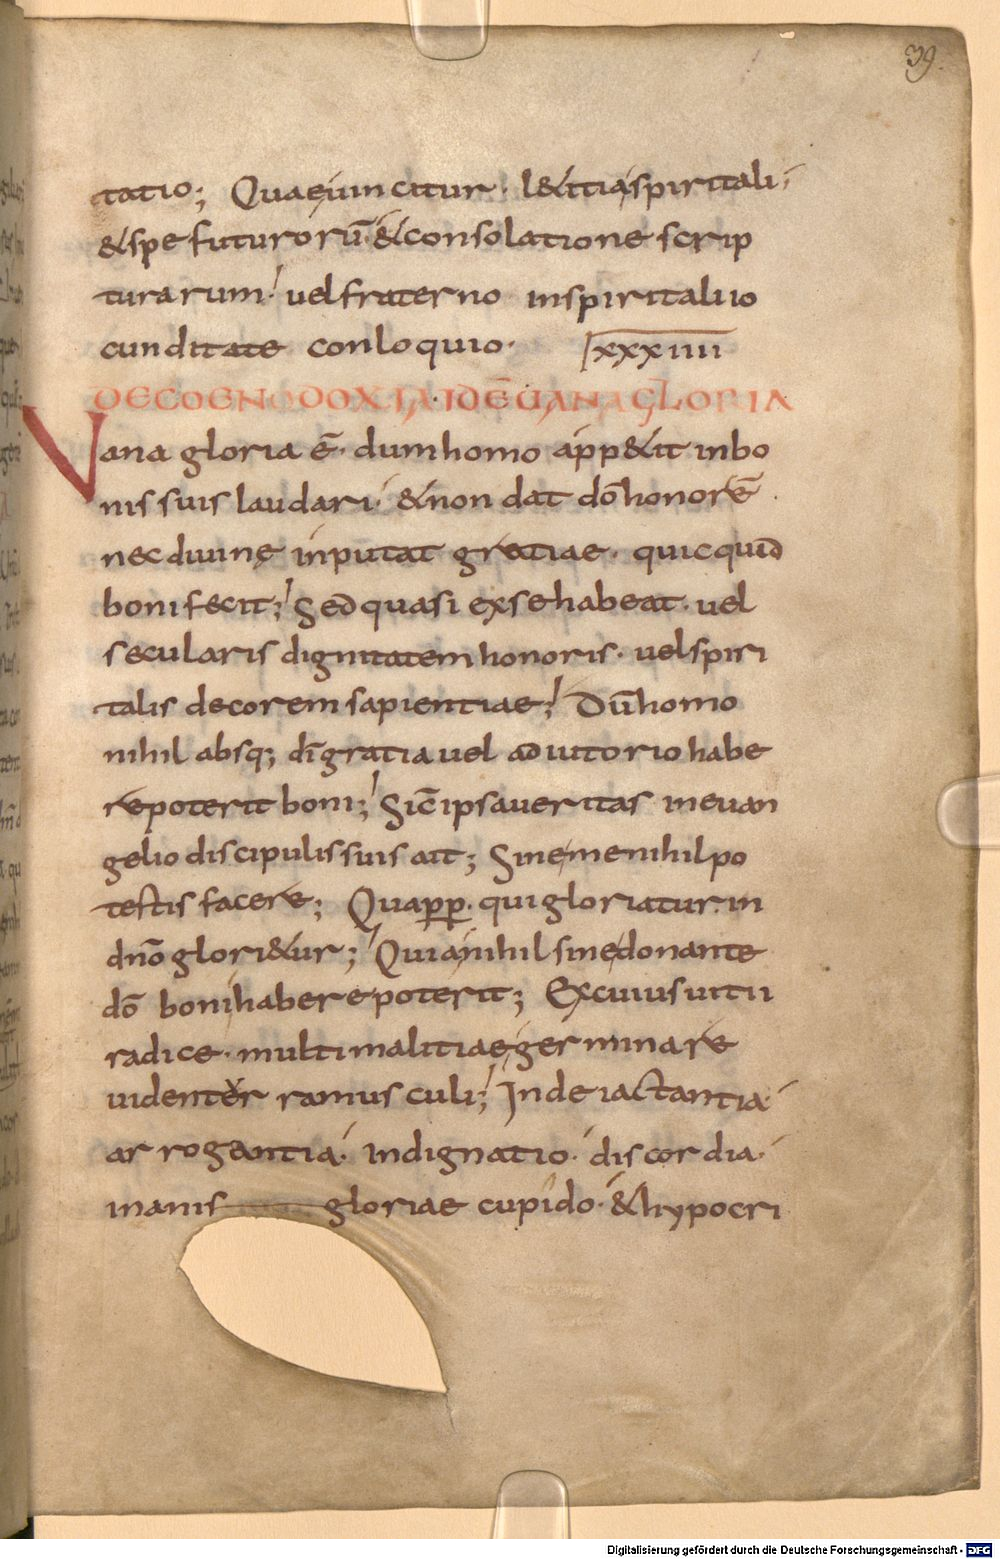 39.
tatio; Quae iuncitur· l&itia spiritali·
& spe futurorū· & consolatione scrip
turarum· uel fraterno inspiritali io
cunditate conloquio· xxxiiii
DE COENODOXIA· IDĒ UANA GLORIA
Vana gloria ē· dum homo app&it in bo
nis suis laudari· & non dat dō honorē·
nec diuinę inputat gratiae· quicquid
boni fecit; Sed quasi ex se habeat· uel
secularis dignitatem honoris· uel spiri
talis decorem sapientiae; Dū homo
nihil absq; dī gratia uel adiutorio habe
re poterit boni; Sic̄ ipsa ueritas in euan
gelio discipulis suis ait; Sine me nihil po
testis facere; Quapp· qui gloriatur· in
dn̄o glori&ur; Quia nihil sine donante
dō boni habere poterit; Ex cuius uitii
radice· multi malitiae germinare
uidentur ramusculi; Inde iactantia·
arrogantia· indignatio· discordia·
inanis gloriae cupido· & hypocri
Digitalisierung gefördert durch die Deutsche Forschungsgemeinschaft - DFG